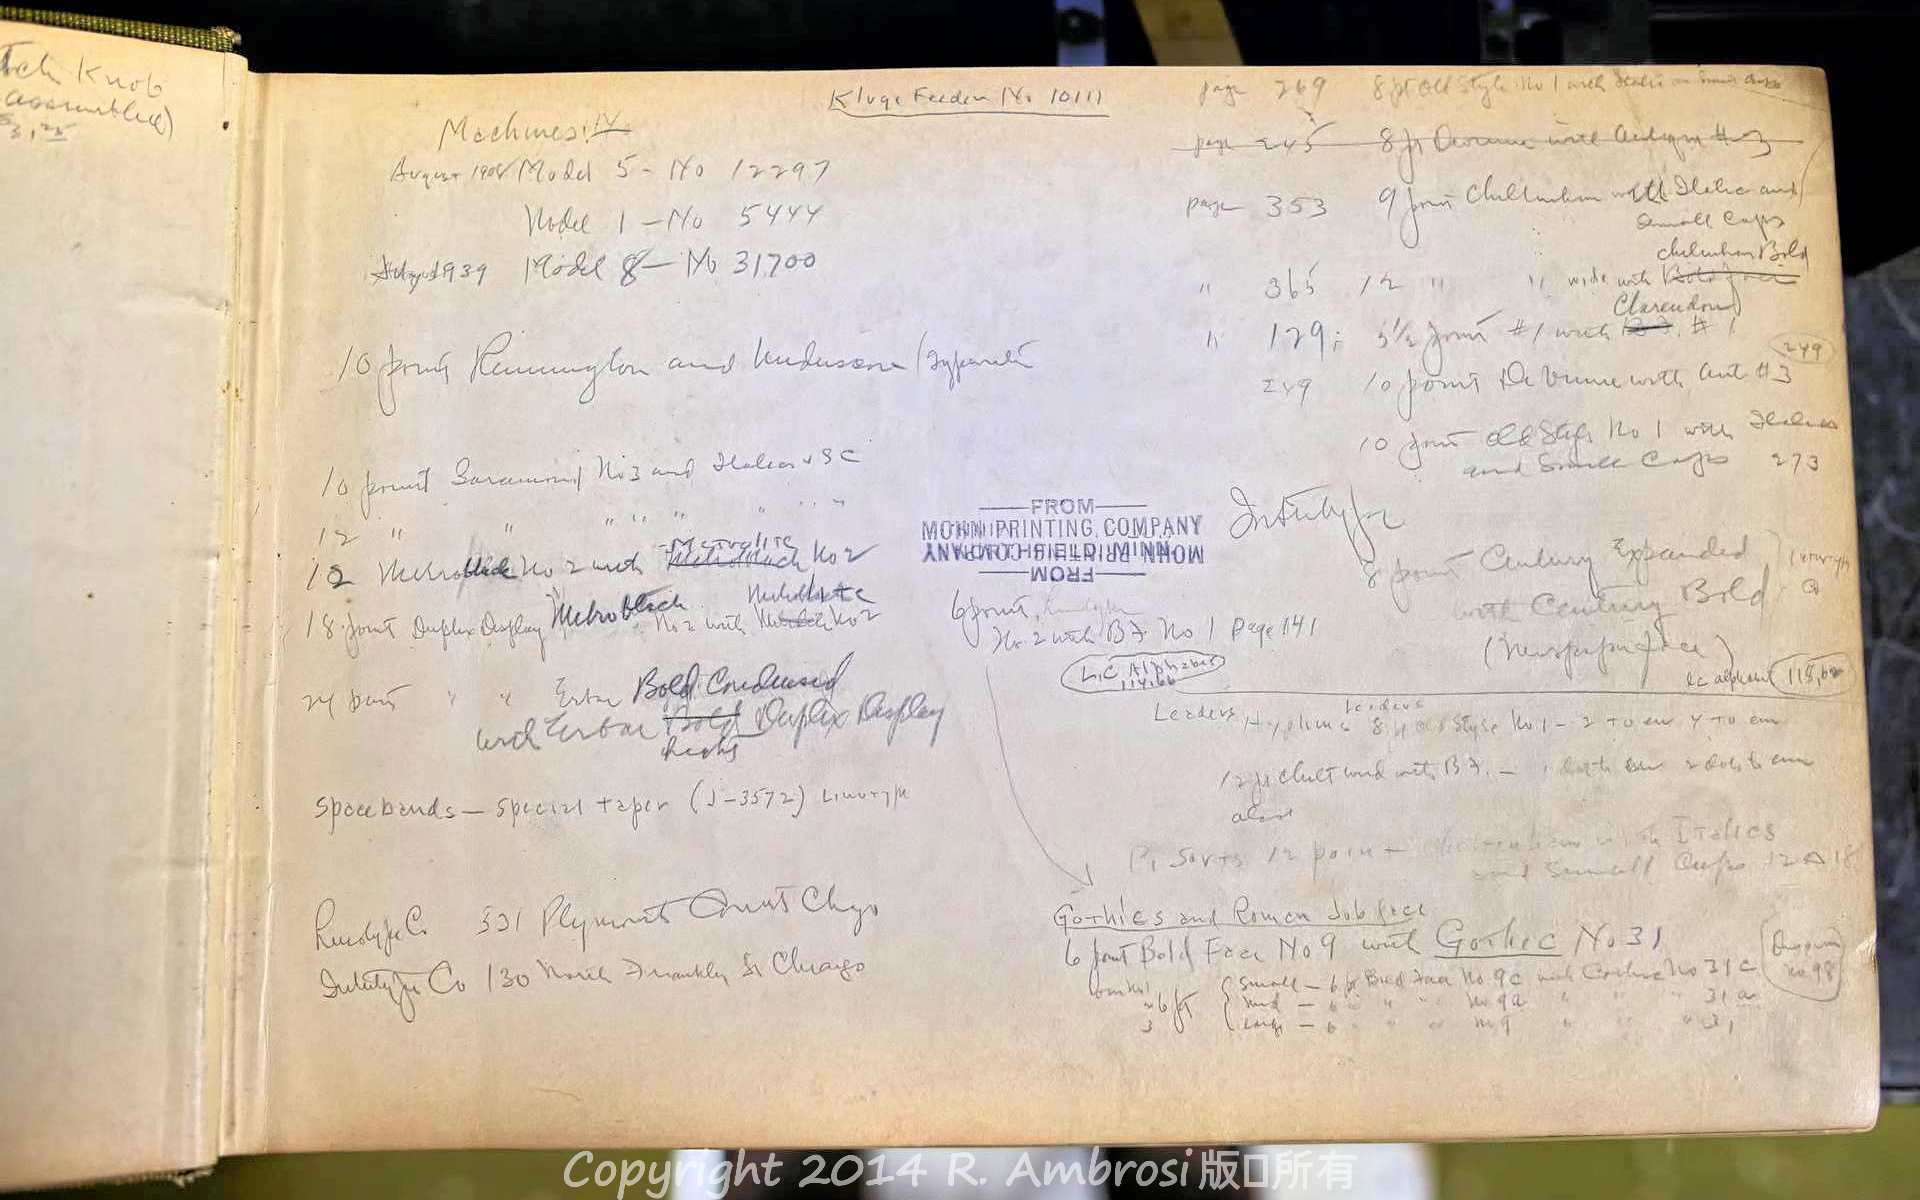 Tech Knob
assembled)
Kluge Feeder No 10111
Machines:
August 1908 Model 5 - No 12297
Model 1 - No 5444
1939 Model 8 - No 31700
10 point Remington and Underscore
10 point Garamond No 3 and Italics + SC
12 " " " " " " " "
12 Metroblack No 2 with Metrolite Metroblack No 2
18 point Duplex Display Metroblack No 2 with Metrolite No 2
24 point " " Erbar Bold Condensed
with Erbar Bold Duplex Display
Spacebands - Special taper (J-3572) Linotype
Linotype Co 531 Plymouth Court Chgo
Intertype Co 130 North Franklin St Chicago
page 269 8 pt Old Style No 1 with Italic and Small Caps
page 245 8 pt Devinne with Antique #3
page 353 9 point Cheltenham with Italics and
Small Caps
Cheltenham Bold
" 365 12 " " wide with Bold face
Clarendon
" 129; 5½ point #1 with #1
249
249 10 point De Vinne with Ant #3
10 point Old Style No 1 with Italics
and Small Caps 273
FROM
MOHN PRINTING COMPANY
MOHN PRINTING COMPANY
FROM
Intertype
8 point Century Expanded
with Century Bold
(Newspaper face)
lc alphabet 118,
6 point
No. 2 with BF No 1 page 141
L.C. Alphabet
114.66
Leaders Leaders
Hyphens 8 pt Old Style No 1 - 2 to em 4 to em
12 pt Chelt wide with BF. - 2 dots to em
also
Pi Sorts 12 point Cheltenham with Italics
and Small Caps 12 A 18
Gothics and Roman Job face
6 point Bold Face No 9 with Gothic No 31
6 pt
3
Small - 6 pt Bold Face No 9c with Gothic No 31c
med - 6 " " " No 9a " " " 31a
large - 6 " " No 9 " " " 31
No 98
Copyright 2014 R. Ambrosi 版▯所有